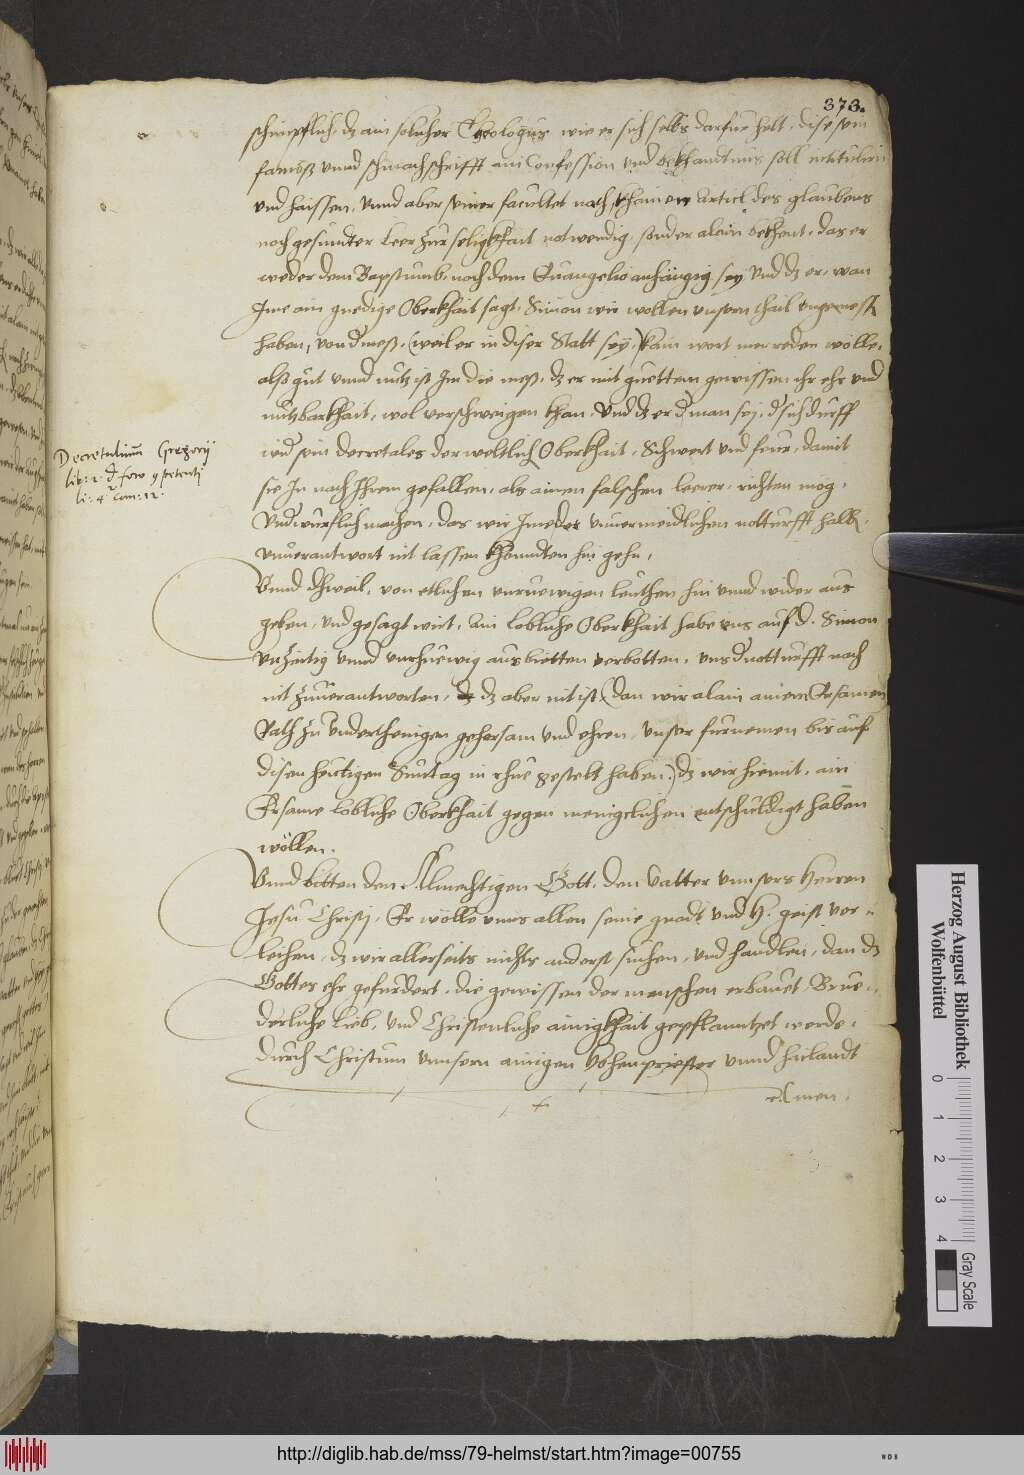 373.
schimpflich, dz ain solicher Theologus wie er sich selbs darfur helt, dise sein
famoß unnd schmachschrifft ain Confession und bekhandtnus soll intitulirn
und haissen, unnd aber seiner facultet nach, khainen Articl des glaubens
noch gesundter Leer zur seligkhait notwendig, sonder alain bekhent, das er
weder dem Bapstumb, noch dem Euangelio anhängig sey und dz er, wan
Ime ain gnedige Oberkhait sagt, Simon wir wollen unsern thail ungemest
haben, von d mess, (weil er in diser Statt sey,) kain wort mer reden wölle,
alß gut unnd nutz ist Im die mess, dz er mit guettem gewissen ihr ehr und
nutzbarkhait, wol verschweigen khan. Und dz er d man sey, d sich durff
wid sein decretales der weltlich Oberkhait, Schwert und feur, damit
Decretalium Gregorij
lib: 2. d foro 9petenti
sie In nach Ihrem gefallen, als ainen falschen leerer, richten mög,
und wurflich machen, das wir Ime des unuermeidlichen notturfft halb,
unuerantwort nit lassen khonndten hin gehn,
Unnd dhweil, von etlichen unruewigen leuthen hin unnd wider aus
geben, und gesagt wirt, ain lobliche Oberkhait habe uns auf d. Simon
unzeitig unnd unrhuewig ausbietten verbotten, uns d notturfft nach
nit zuuerantworten, dz aber nit ist (dan wir alain ainem Ersamen
Rath zu underthenigen gehorsam und ehren, unser furnemen bis auf
disen heutigen Suntag in rhue gestelt haben,) dz wir hiemit, ain
Ersame lobliche Oberkhait gegen menigclichen entschuldigt haben
wöllen.
Unnd bitten den Almechtigen Gott, den Vatter unnsers Herren
Jesu Christj, Er wölle unns allen seine gnadt und H. geist ver-
leihen, dz wir allerseits nichts anderst suchen, und handlen, dan dz
Gottes ehr gefurdert, die gewissen der menschen erbauet, Brue-
derliche Lieb, und Christenliche ainigkhait gepflanntzet werde,
durch Christum unnsern ainigen Hohenpriester unnd hailandt
Amen.
Herzog August Bibliothek
Wolfenbüttel
0 1 2 3 4
Gray Scale
http://diglib.hab.de/mss/79-helmst/start.htm?image=00755